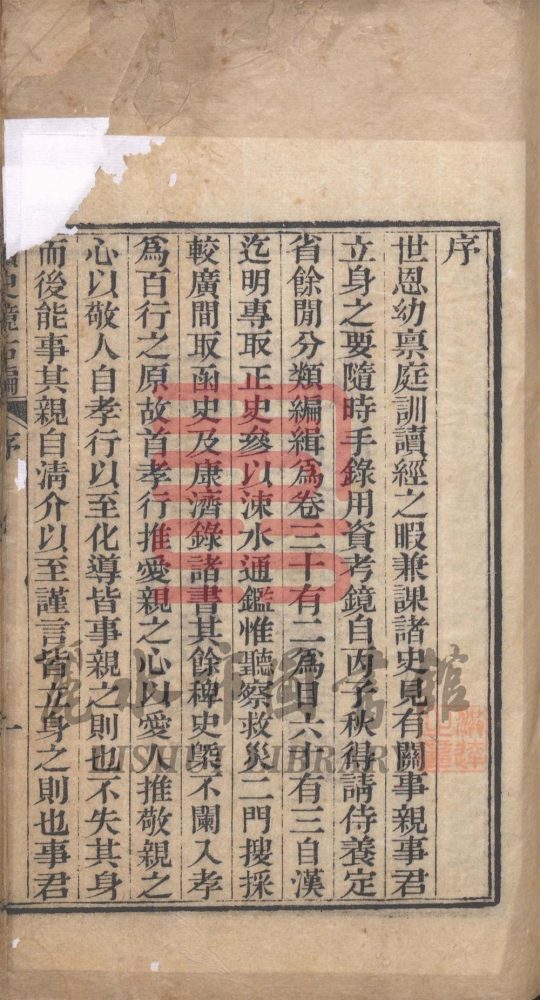 序
世恩幼禀庭訓讀經之暇兼課諸史見有關事親事君
立身之要隨時手錄用資考鏡自丙子秋得請侍養定
省餘閒分類編緝為卷三十有二為目六十有三自漢
迄明專取正史參以涑水通鑑惟聽察救災二門搜採
較廣間取函史及康濟錄諸書其餘稗史槩不闌入孝
為百行之原故首孝行推愛親之心以愛人推敬親之
心以敬人自孝行以至化導皆事親之則也不失其身
而後能事其親自清介以至謹言皆立身之則也事君
史鏡古編
序
一
麗水市圖書館
LISHUI LIBRARY